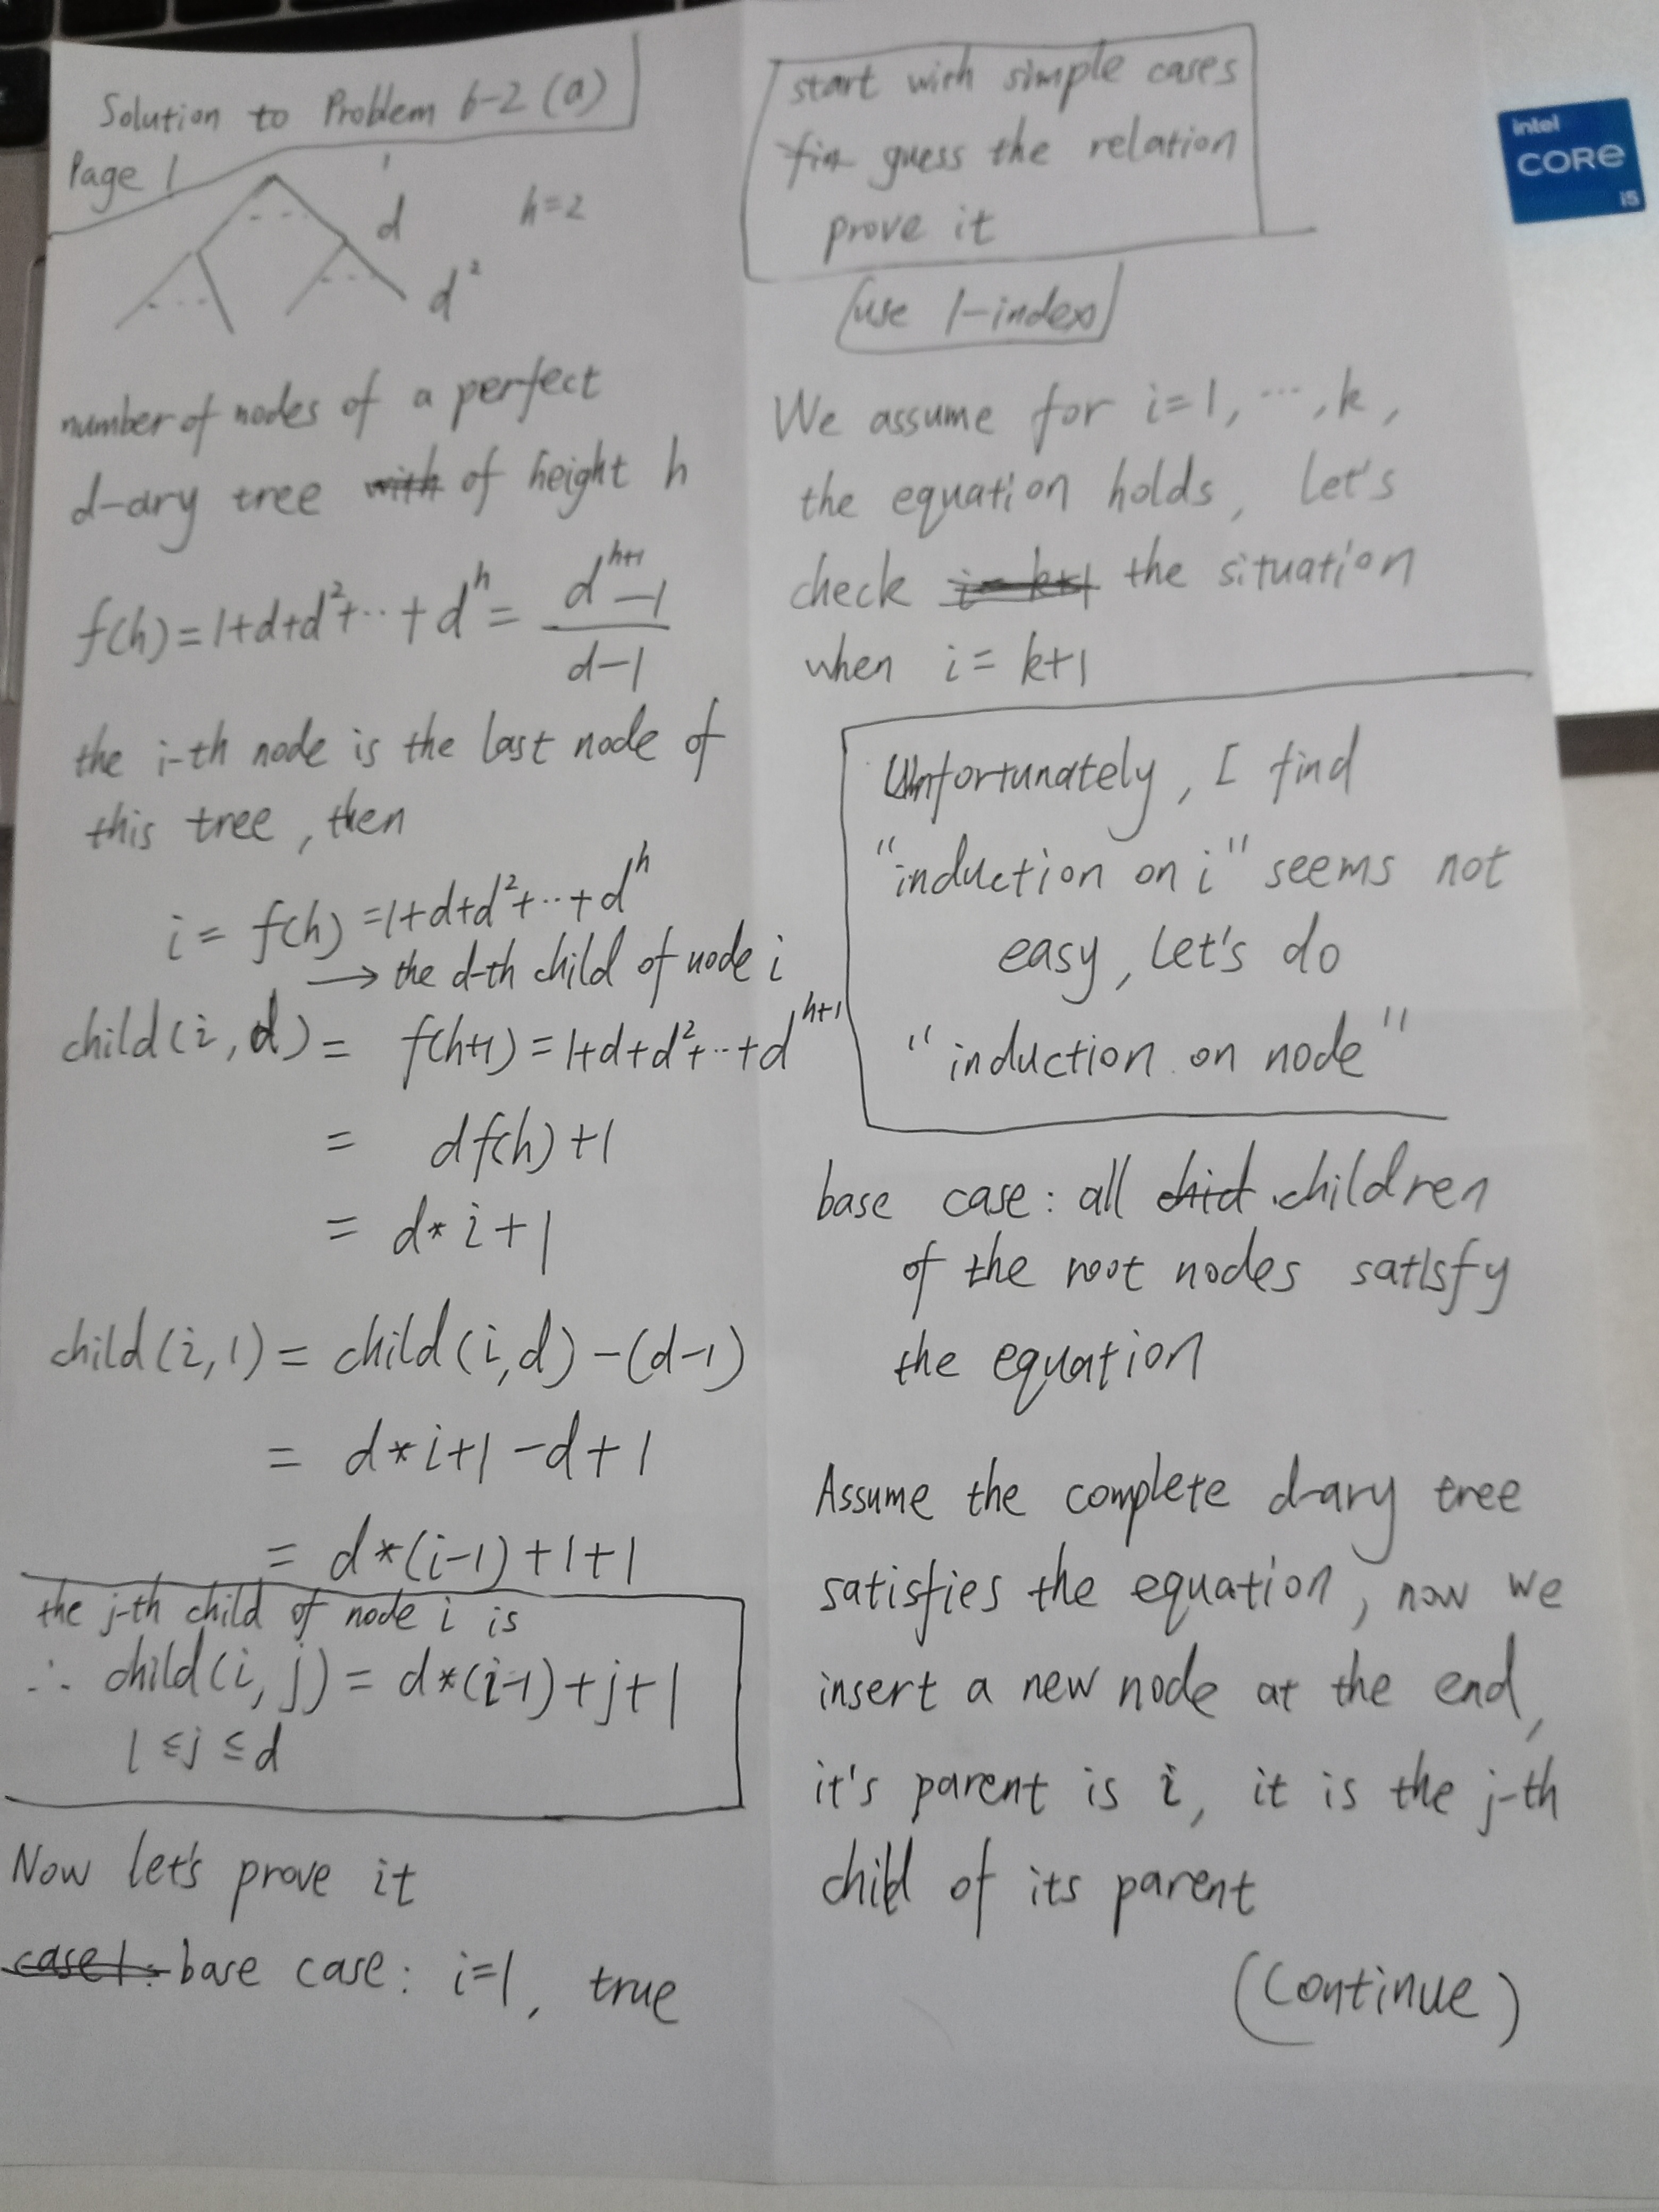 Solution to Problem 6-2 (a)
Page 1
d
h=2
d²
number of nodes of a perfect
d-ary tree with of height h
f(h)=1+d+d²+··+d^h = (d^{h+1}-1)/(d-1)
the i-th node is the last node of
this tree, then
i = f(h) =1+d+d²+··+d^h
→ the d-th child of node i
child(i, d) = f(h+1) = 1+d+d²+··+d^{h+1}
= df(h)+1
= d*i+1
child(i,1) = child(i,d)-(d-1)
= d*i+1-d+1
= d*(i-1)+1+1
the j-th child of node i is
∴ child(i, j) = d*(i-1)+j+1
1≤j≤d
Now let's prove it
case1: base case: i=1, true
start with simple cases
fin guess the relation
prove it
use 1-index
We assume for i=1, ···, k,
the equation holds, let's
check i=k+1 the situation
when i=k+1
Unfortunately, I find
"induction on i" seems not
easy, let's do
"induction on node"
base case: all chid children
of the root nodes satisfy
the equation
Assume the complete d-ary tree
satisfies the equation, now we
insert a new node at the end,
it's parent is i, it is the j-th
child of its parent
(Continue)
intel
CORE
i5